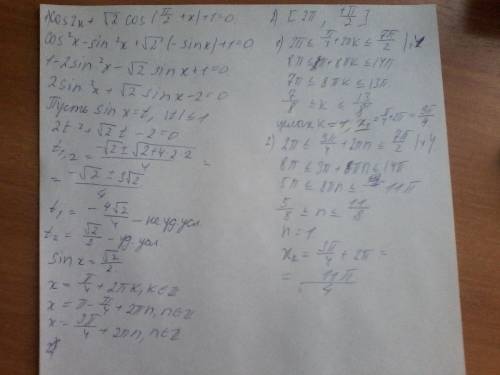 cos2x + √2 cos(π/2 + x) + 1 = 0
cos²x - sin²x + √2 (-sinx) + 1 = 0
1 - 2sin²x - √2 sinx + 1 = 0
2sin²x + √2 sinx - 2 = 0
Пусть sinx = t, |t| ≤ 1
2t² + √2 t - 2 = 0
t1,2 = (-√2 ± √(2+4·2·2))/4 =
= (-√2 ± 3√2)/4
t1 = -4√2/4 - не уд. усл.
t2 = √2/2 - уд. усл.
sinx = √2/2
x = π/4 + 2πk, k∈Z
x = π - π/4 + 2πn, n∈Z
x = 3π/4 + 2πn, n∈Z
[2π, 7π/2]
1) 2π ≤ π/4 + 2πk ≤ 7π/2 |·4
8π ≤ π + 8πk ≤ 14π
7π ≤ 8πk ≤ 13π
7/8 ≥ k ≤ 13/8
k = 1, x1 = π/4 + 2π = 9π/4
2) 2π ≤ 3π/4 + 2πn ≤ 7π/2 |·4
8π ≤ 3π + 8πn ≤ 14π
5π ≤ 8πn ≤ 11π
5/8 ≥ n ≤ 11/8
n = 1
x2 = 3π/4 + 2π =
= 11π/4